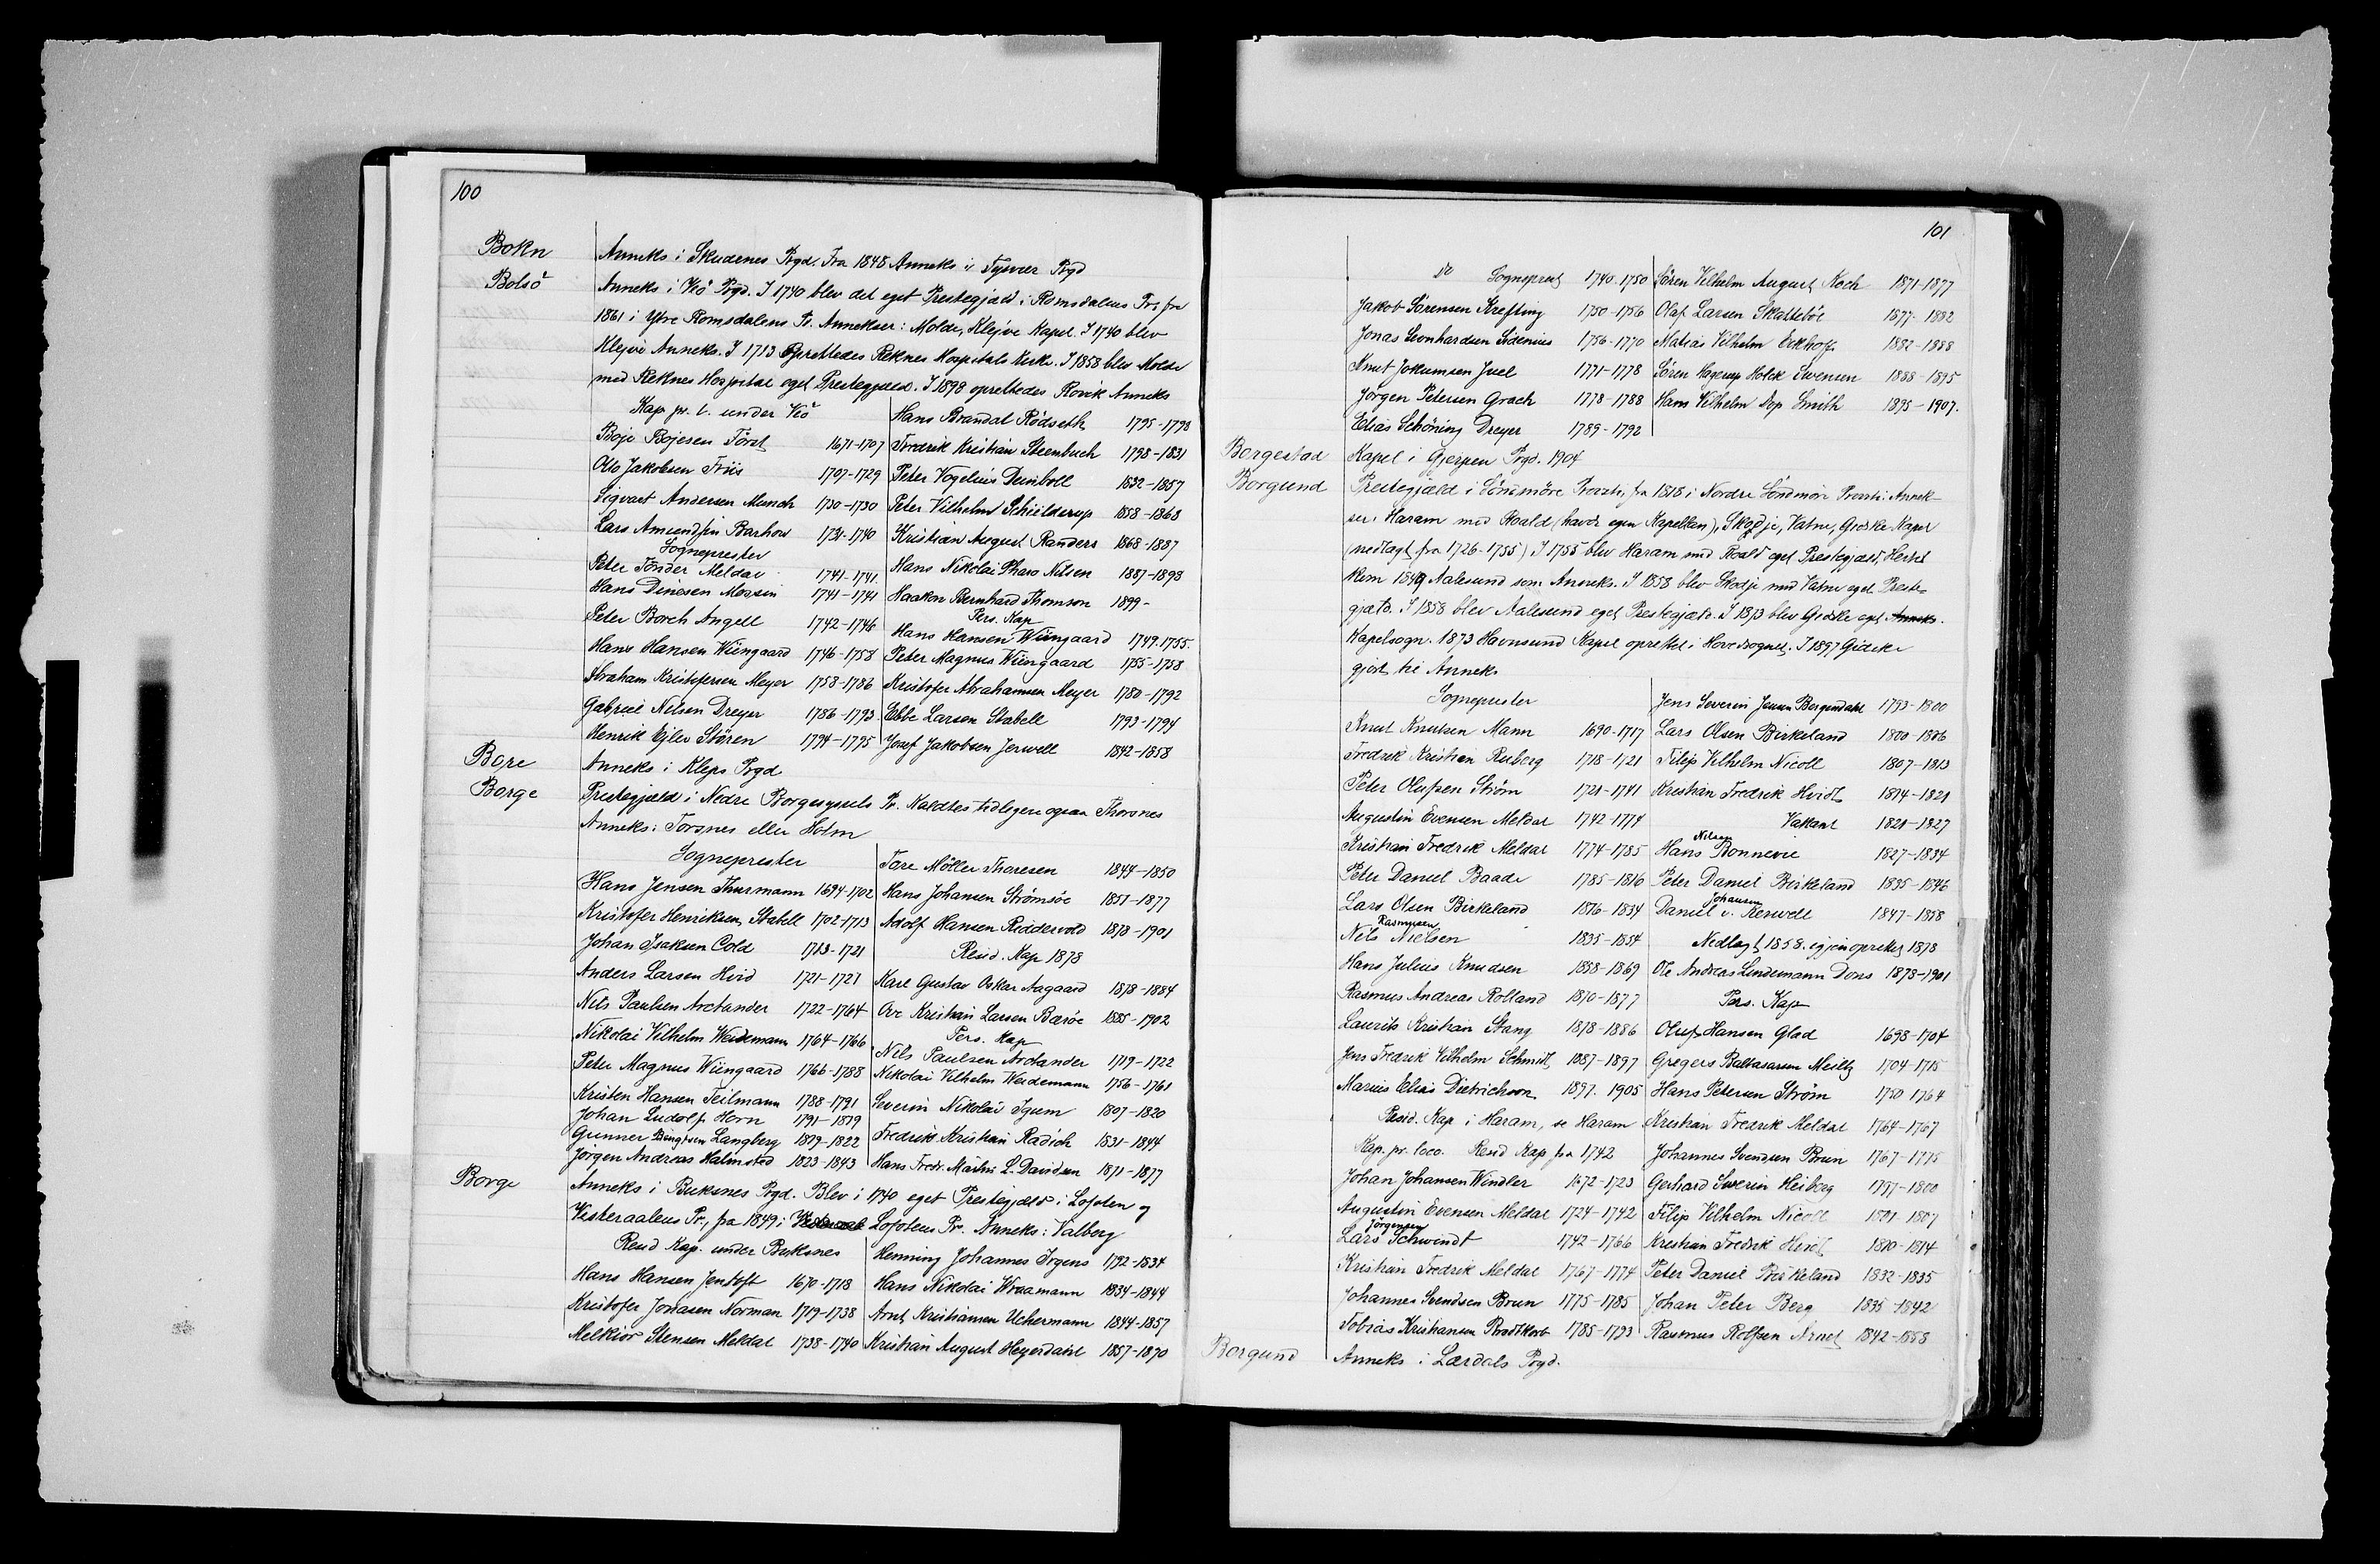 100
Bokn Anneks i Skudenes Prgd. Fra 1848 Anneks i Tysvær Prgd
Bolsö Anneks i Veö Prgd. I 1740 blev det eget Prestegjæld i Romsdalens Pr, fra
1861 i Ytre Romsdalens Pr. Annekser: Molde, Klejve Kapel. I 1740 blev
Klejve Anneks. I 1713 oprettedes Reknes Hospitals Kirke. I 1858 blev Molde
med Reknes Hospital eget Prestegjæld. I 1898 oprettedes Rövik Anneks
Kap. pr. l. under Veö
Boje Bojesen Först 1671-1707
Otto Jakobsen Friis 1707-1729
Sigvart Andersen Munch 1730-1730
Lars Amundsen Barhow 1731-1740
Sogneprester
Peter Tönder Meldal 1741-1741
Hans Dinesen Morsin 1741-1741
Peter Borch Angell 1742-1746
Hans Hansen Wiingaard 1746-1758
Abraham Kristofersen Meyer 1758-1786
Gabriel Nilsen Dreyer 1786-1793
Henrik Ejlev Stören 1794-1795
Hans Brandal Rödseth 1795-1798
Fredrik Kristian Steenbuch 1798-1831
Peter Vogelius Deinboll 1832-1857
Peter Vilhelm Schielderup 1858-1868
Kristian August Randers 1868-1887
Hans Nikolai Pharo Nilsen 1887-1898
Haakon Bernhard Thomson 1899-
Pers. Kap
Hans Hansen Wiingaard 1749-1755
Peter Magnus Wiingaard 1755-1758
Kristofer Abrahamsen Meyer 1780-1792
Ebbe Larsen Stabell 1793-1794
Josef Jakobsen Jerwell 1842-1858
Bore Anneks i Kleps Prgd
Borge Prestegjæld i Nedre Borgesyssels Pr. Kaldtes tidligere ogsaa Thorsnes
Anneks: Torsnes eller Holm
Sogneprester
Hans Jensen Thurmann 1694-1702
Kristofer Henriksen Stabell 1702-1713
Johan Isaksen Cold 1713-1721
Anders Larsen Hvid 1721-1721
Nils Paulsen Arctander 1722-1764
Nikolai Vilhelm Weidemann 1764-1766
Peter Magnus Wiingaard 1766-1788
Kristen Hansen Teilmann 1788-1791
Johan Ludolf Horn 1791-1819
Gunner Bengtsen Langberg 1819-1822
Jörgen Andreas Halmsted 1823-1843
Tore Möller Thoresen 1844-1850
Hans Johansen Strömsöe 1851-1877
Adolf Hansen Riddervold 1878-1901
Resid. Kap 1878
Karl Gustav Oskar Aagaard 1878-1884
Ove Kristian Larsen Barøe 1885-1902
Pers. Kap
Nils Paulsen Arctander 1719-1722
Nikolai Vilhelm Weidemann 1756-1761
Severin Nikolai Igum 1807-1820
Fredrik Kristian Radich 1831-1844
Hans Fredr. Martin L. Davidsen 1871-1877
Borge Anneks i Buksnes Prgd. Blev i 1740 eget Prestegjæld i Lofoten og
Vesteraalens Pr, fra 1849 i Vesteraal Lofotens Pr. Anneks: Valberg
Resid Kap. under Buksnes
Hans Hansen Jentoft 1670-1718
Kristofer Jonasen Norman 1719-1738
Melkior Stensen Meldal 1738-1740
Henning Johannes Irgens 1792-1834
Hans Nikolai Wraamann 1834-1844
Arnt Kristiansen Uchermann 1844-1857
Kristian August Heyerdahl 1857-1870
101
Do Sogneprest 1740-1750
Jakob Sörensen Krefting 1750-1756
Jonas Leonhardsen Sidenius 1756-1770
Knut Jokumsen Juel 1771-1778
Jörgen Petersen Grach 1778-1788
Elias Schöning Dreyer 1789-1792
Sören Vilhelm August Koch 1871-1877
Olaf Larsen Skattebøl 1877-1882
Matias Vilhelm Eckhoff 1882-1888
Sören Hagerup Holck Swensen 1888-1895
Hans Vilhelm Dop Smith 1895-1907.
Borgestad Kapel i Gjerpen Prgd. 1904
Borgund Prestegjæld i Söndmöre Provsti, fra 1818 i Nordre Söndmöre Provsti. Annek-
ser: Haram med Roald (havde egen Kapellan), Skodje, Vatne, Giske Kapel
(nedlagt fra 1726-1755) I 1755 blev Haram med Roald eget Prestegjæld,
kom 1849 Aalesund som Anneks. I 1858 blev Skodje med Vatne eget Preste-
gjæld. I 1858 blev Aalesund eget Prestegjæld. I 1873 blev Giske eget Anneks.
Kapelsogn. 1873 Havnsund Kapel oprettet i Hovedsognet. I 1897 Gidske
gjort til Anneks
Sogneprester
Knut Knutsen Mann 1690-1717
Fredrik Kristian Ruberg 1718-1721
Peter Olufsen Ström 1721-1741
Augustin Evensen Meldal 1742-1774
Kristian Fredrik Meldal 1774-1785
Peter Daniel Baade 1785-1816
Lars Olsen Birkeland 1816-1834
Nils Rasmussen Nielsen 1835-1854
Hans Julius Knudsen 1858-1869
Rasmus Andreas Rolland 1870-1877
Laurits Kristian Stang 1878-1886
Jens Fredrik Vilhelm Schmidt 1887-1897
Marius Elias Dietrichson 1897-1905
Resid. Kap i Haram, se Haram
Kap. pr. loco. Resid Kap fra 1742
Johan Johansen Windler 1672-1723
Augustin Evensen Meldal 1724-1742
Lars Jörgensen Schwindt 1742-1766
Kristian Fredrik Meldal 1767-1774
Johannes Svendsen Brun 1775-1785
Tobias Kristiansen Brodtkorb 1785-1793
Jens Severin Jensen Bergendahl 1793-1800
Lars Olsen Birkeland 1800-1806
Filip Vilhelm Nicoll 1807-1813
Kristian Fredrik Hvidt 1814-1821
Vakant 1821-1827
Hans Nilsen Bonnevie 1827-1834
Peter Daniel Birkeland 1835-1846
Daniel Johansen v. Kervell 1847-1858
Nedlagt 1858. igjen oprettet 1878
Ole Andreas Lindemann Dons 1878-1901
Pers. Kap
Oluf Hansen Glad 1698-1704
Gregers Baltasarsen Meiltz 1704-1715
Hans Petersen Ström 1750-1764
Kristian Fredrik Meldal 1764-1767
Johannes Svendsen Brun 1767-1775
Gerhard Severin Heiberg 1797-1800
Filip Vilhelm Nicoll 1801-1807
Kristian Fredrik Hvidt 1810-1814
Peter Daniel Birkeland 1832-1835
Johan Peter Berg 1835-1842
Rasmus Rolfsen Arnet 1842-1858
Borgund Anneks i Lærdals Prgd.